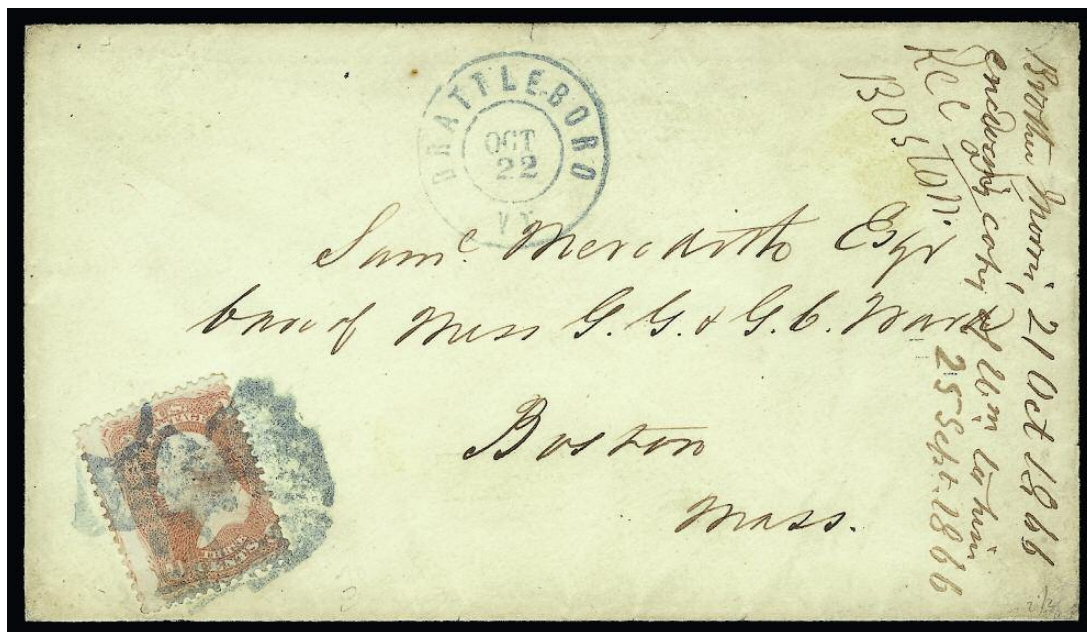 BRATTLEBORO
OCT
22
VT
Saml. Meredith Esqr
Care of Mess G. G. & G. C. Ward
Boston
Mass.
U.S. POSTAGE
THREE
CENTS
Brother 21 Oct 1866
enclosing copy Wm to him
25 Sept. 1866
Rec
Boston.